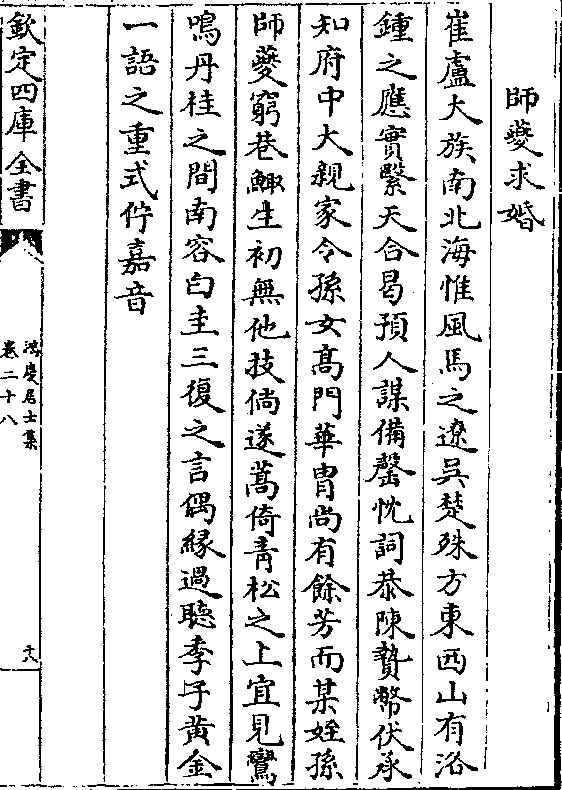 師夔求婚
崔盧大族南北海惟風馬之遼吳楚殊方東西山有洛
鍾之應實繫天合曷預人謀備罄忱詞恭陳贄幣伏承
知府中大親家令孫女髙門華胄尚有餘芳而某姪孫
師夔窮巷鯫生初無他技倘遂蔦倚青松之上宜見鸞
鳴丹桂之間南容白圭三復之言偶緣過聽季子黄金
一語之重式佇嘉音
欽定四庫全書
鴻慶居士集
卷二十八